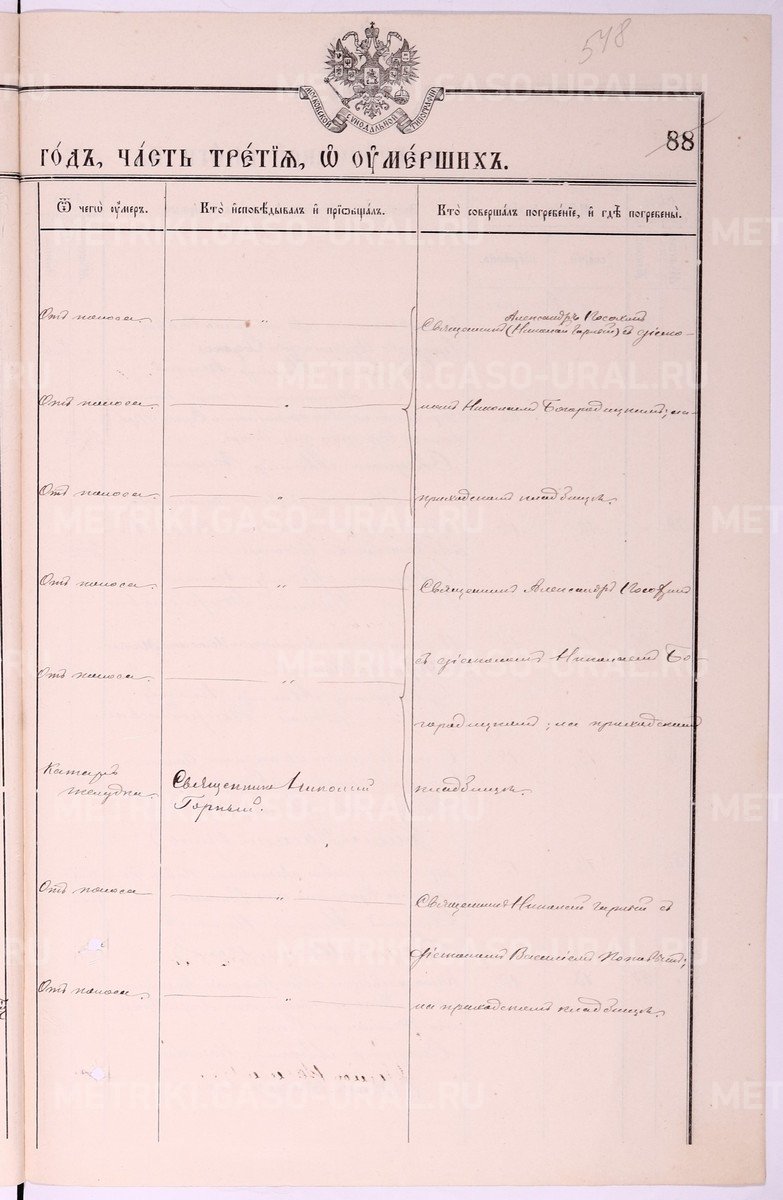 548
МОСКОВСКОЙ СѴНОДАЛЬНОЙ ТИПОГРАФІИ
88
ГОДЪ, ЧАСТЬ ТРЕТІЯ, Ѡ ОУМЕРШИХЪ.
Ѿ чегѡ оумеръ.
Кто исповѣдывалъ и пріѡбщалъ.
Кто совершалъ погребеніе, и гдѣ погребены.
Отъ поноса. — „ —
Александръ
Священникъ (Николай Горный) съ діако-
Отъ поноса. — „ —
номъ Николаемъ Богородицкимъ; на
Отъ поноса. — „ —
приходскомъ кладбищѣ.
Отъ поноса. — „ —
Священникъ Александръ
съ діакономъ Николаемъ Бо-
Отъ поноса. — „ —
городицкимъ; на приходскомъ
Катаръ
желудка.
Священникъ Николай
Горный.
кладбищѣ.
Отъ поноса — „ —
Священникъ Николай Горный съ
діакономъ Василіемъ Поповымъ;
Отъ поноса. — „ —
на приходскомъ кладбищѣ.
METRIKI.GASO-URAL.RU